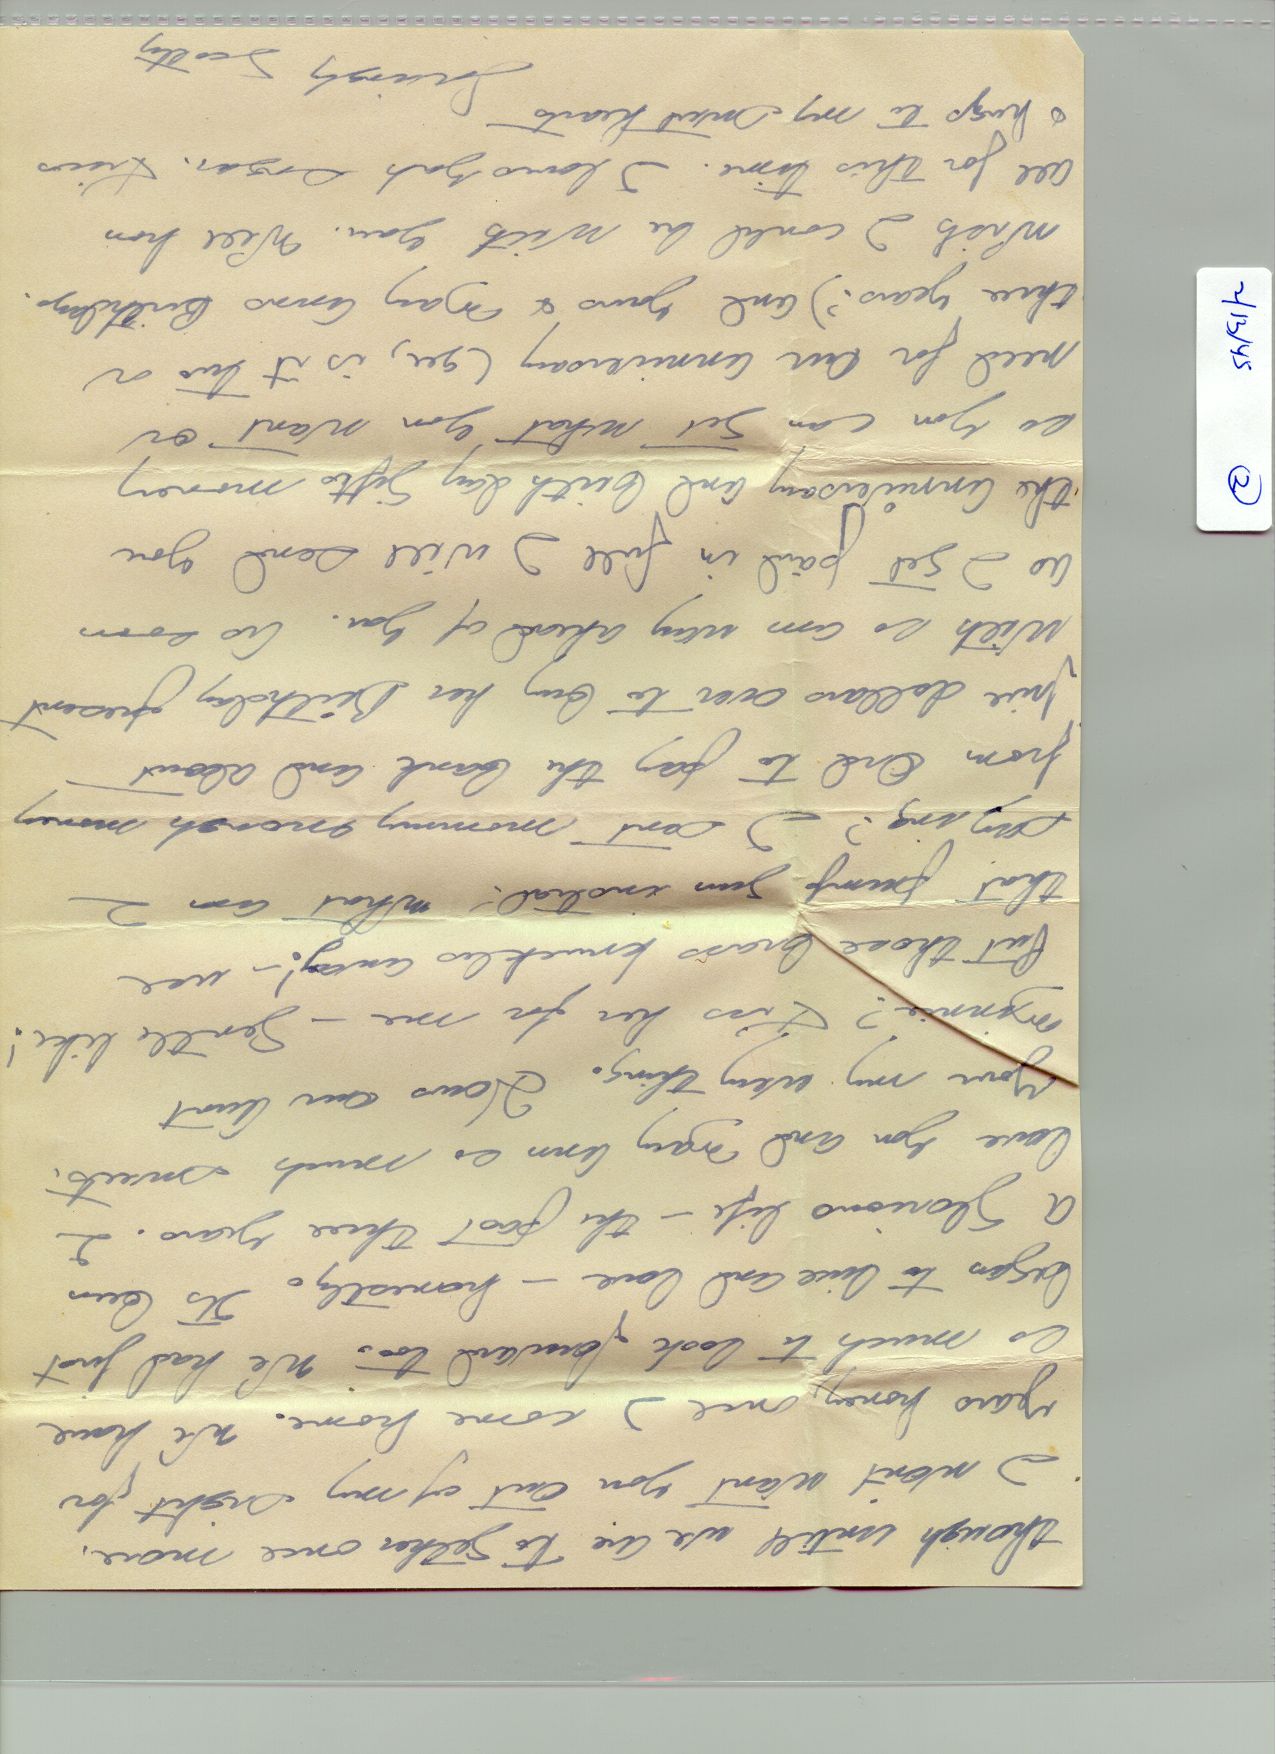 though untill we are to gether once more.
I wont want you out of my sight for
years honey, once I come home. We have
so much to look forward too. We had just
began to live and love – honestly. Its been
a glorious life – the past three years. I
love you and Mary Ann so much sweets.
Your my every thing. Hows our Aunt
Minnie? Kiss her for me – gentle like!
Put those brass knuckles away! – use
that pump gun instead! What am I
saying? I sent mommy enough money
from to pay the bank and about
five dollars over to buy her Birthday present
with so am way ahead of you. As soon
as I get paid in full I will send you
the anniversary and birth day gifts money
so you can get what you want or
need for our anniversary (gee, is it two or
three years?) and yours & Mary Anns Birthday.
Which I could be with you. Well hon
all for this time. I loves yah sugar. Kisses
& hugs to my sweet hearts
Lovingly Scotty
2/13/45 ②